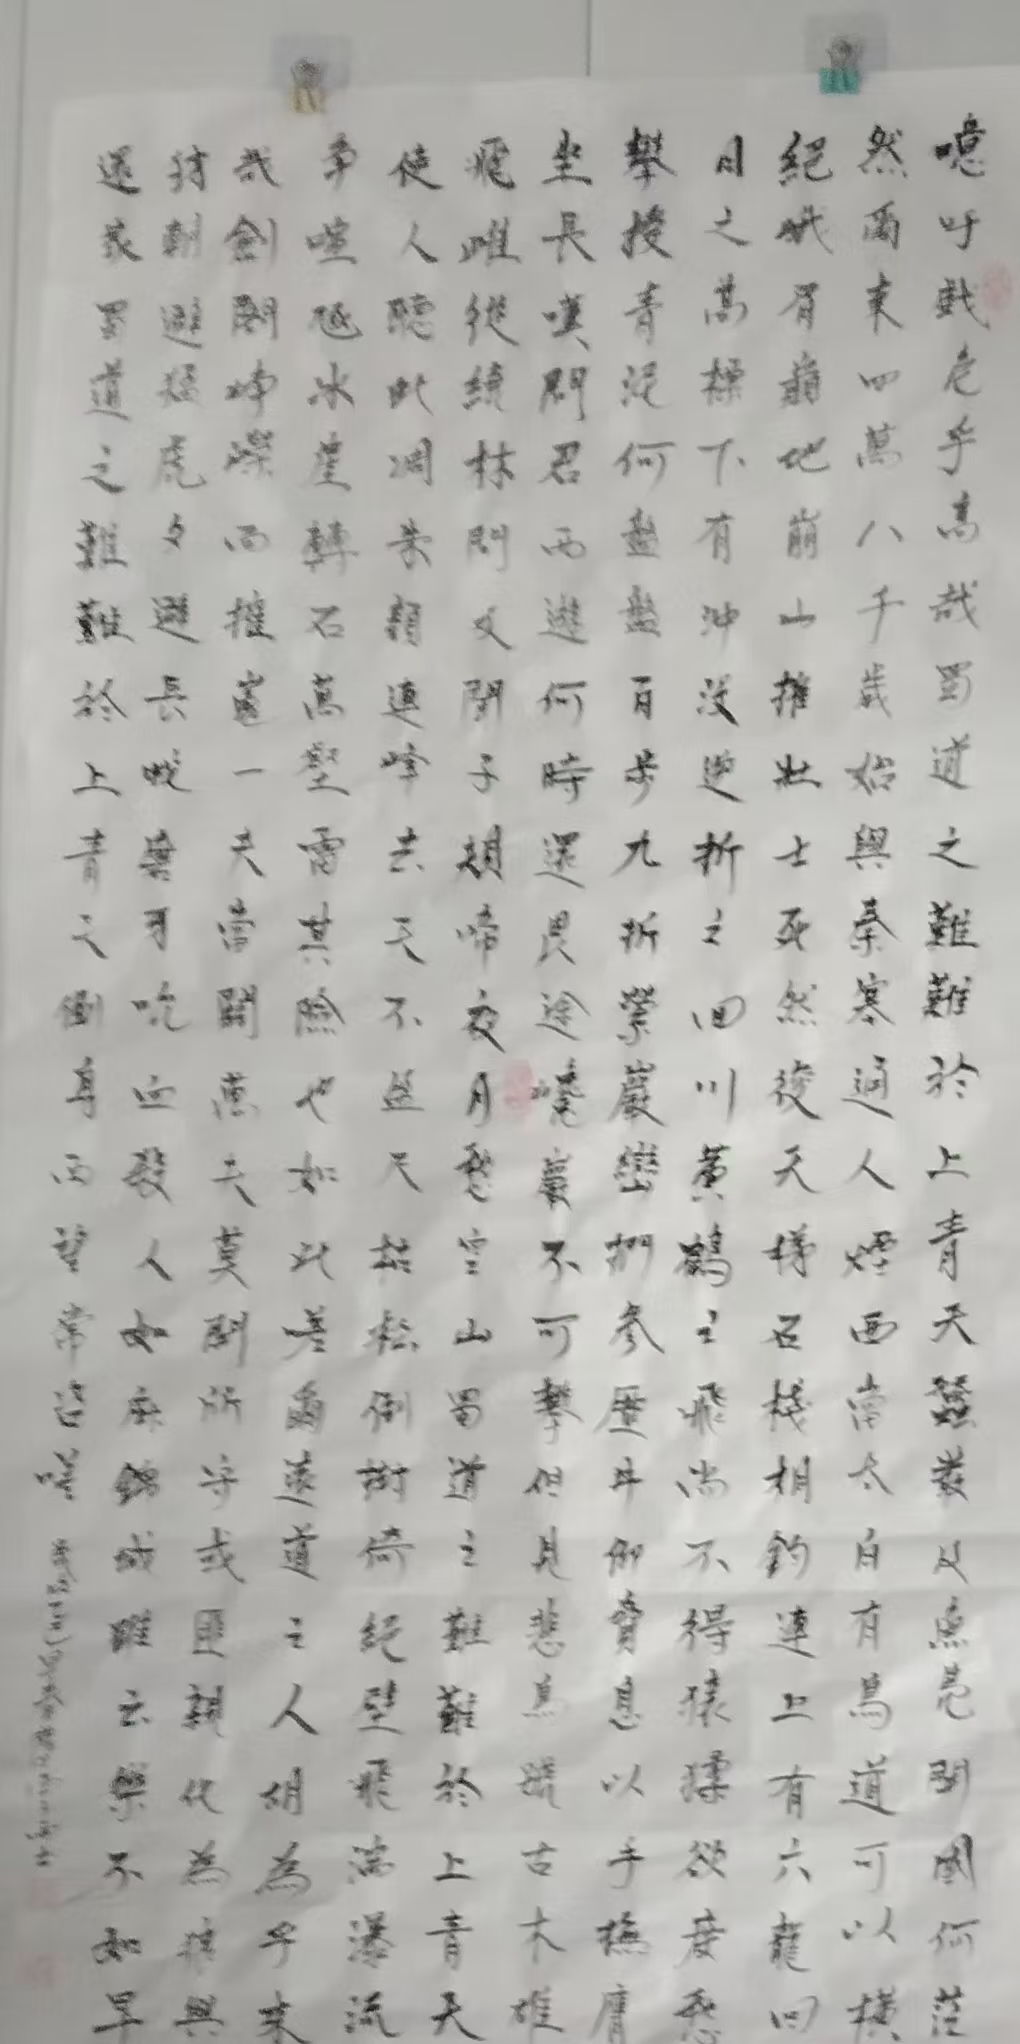 噫吁戲危乎高哉蜀道之難難於上青天蠶叢及魚鳧開國何茫
然爾來四萬八千歲始與秦塞通人煙西當太白有鳥道可以橫
絕峨眉巔地崩山摧壯士死然後天梯石棧相鈎連上有六龍回
日之高標下有沖波逆折之回川黃鶴之飛尚不得猿猱欲度愁
攀援青泥何盤盤百步九折縈巖巒捫參歷井仰脅息以手撫膺
坐長嘆問君西遊何時還畏途巉巖不可攀但見悲鳥號古木雄
飛雌從繞林間又聞子規啼夜月愁空山蜀道之難難於上青天
使人聽此凋朱顏連峰去天不盈尺枯松倒掛倚絕壁飛湍瀑流
爭喧豗冰崖轉石萬壑雷其險也如此嗟爾遠道之人胡為乎來
哉劍閣崢嶸而摧嵬一夫當關萬夫莫開所守或匪親化為狼與
豺朝避猛虎夕避長蛇磨牙吮血殺人如麻錦城雖云樂不如早
還家蜀道之難難於上青天側身西望常咨嗟